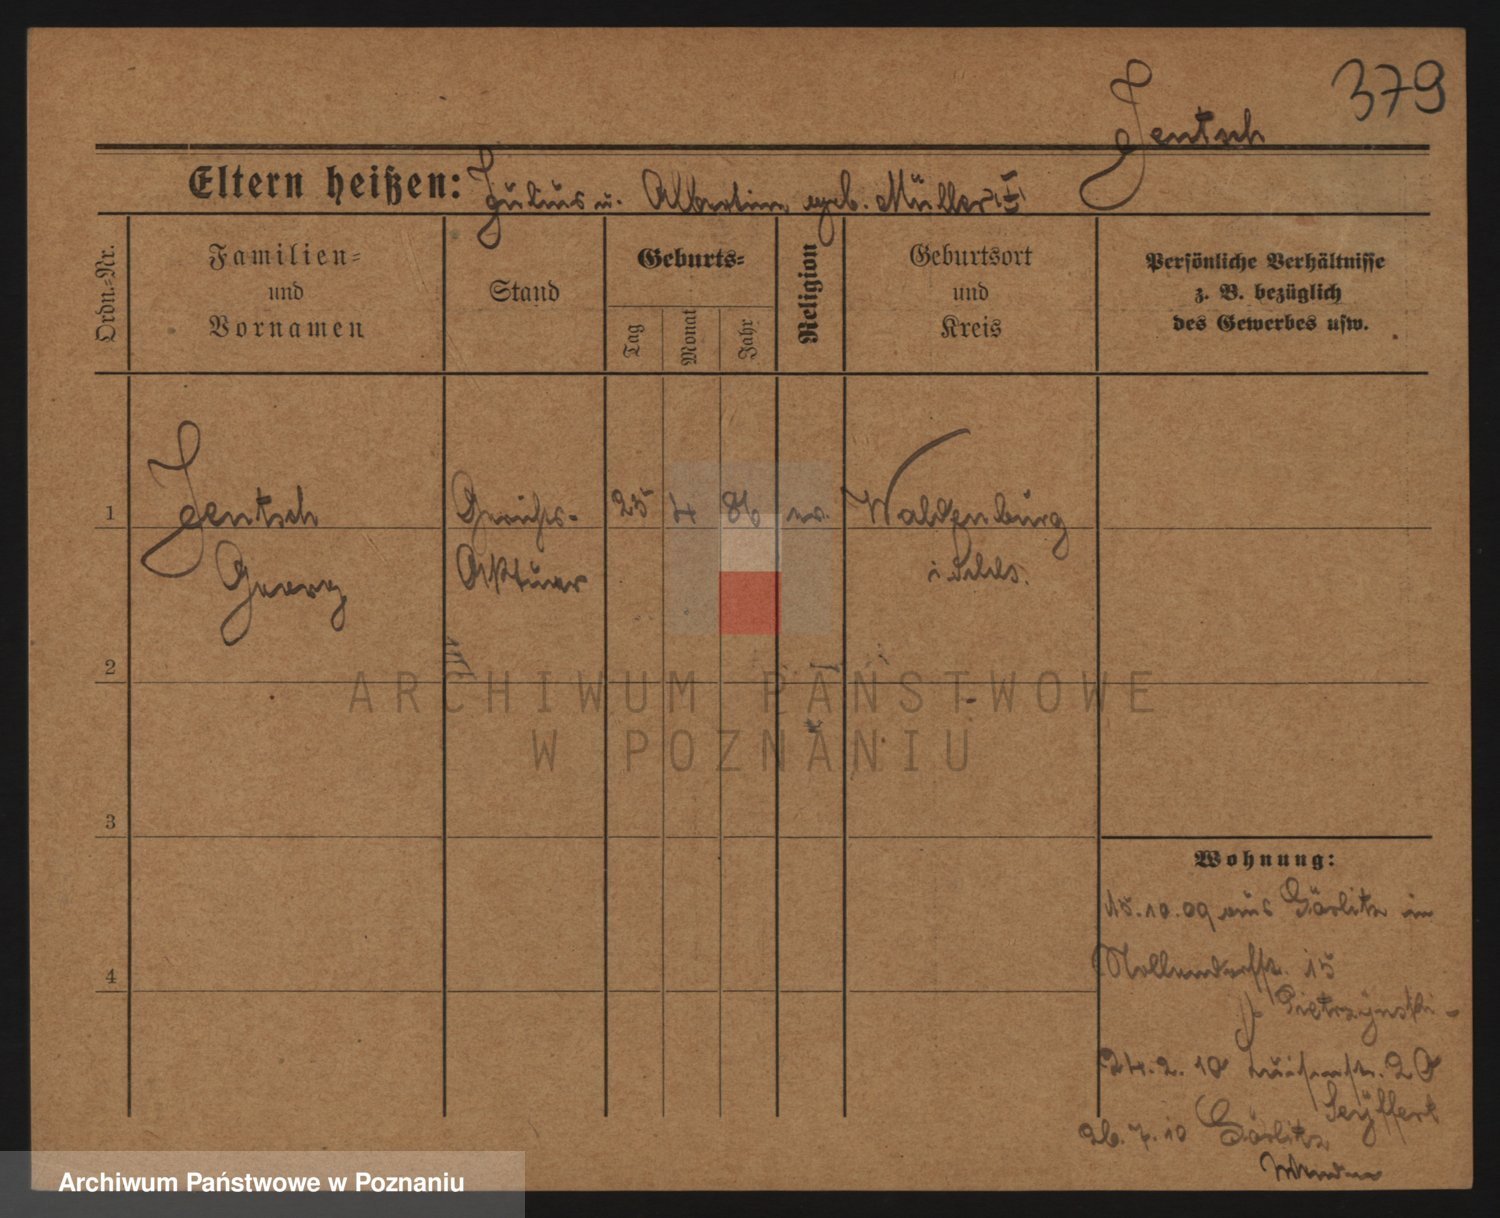 379
Jentsch
Eltern heißen: Julius u. Albertine geb. Müller
Ordn.-Nr.
Familien-
und
Vornamen
Stand
Geburts-
Tag
Monat
Jahr
Religion
Geburtsort
und
Kreis
Persönliche Verhältnisse
z. B. bezüglich
des Gewerbes usw.
1
Jentsch
Georg
Gerichts-
Aktuar
25 4 86 ev.
Waldenburg
i Schles.
2
3
4
Wohnung:
15.10.09 aus Görlitz in
Nollendorfstr. 15
b. Pietrzynski
24.2.10 Luisenstr. 20
Seyffert
26.7.10 Görlitz
ARCHIWUM PAŃSTWOWE
W POZNANIU
Archiwum Państwowe w Poznaniu